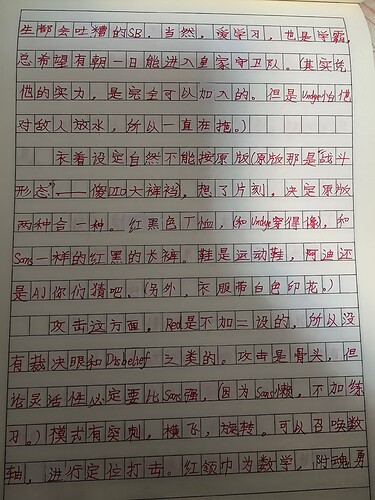 生都会吐槽的SB，当然，爱学习，也是学霸，
总希望有朝一日能进入皇家守卫队。（其实凭
他的实力，是完全可以加入的。但是Undye怕他
对敌人放水，所以一直在拖。）
衣着设定自然不能按原版（原版那是“战斗
形态”——傻叉大裤裆，想了片刻，决定原版
两种合一种。红黑色T恤，（和Undye穿得像，和
Sans一样的红黑的长裤。鞋是运动鞋，阿迪还
是AJ你们猜吧。（另外，衣服带白色印花。）
攻击这方面。Red是不加二设的，所以没
有裁决眼和Disbelief之类的。攻击是骨头，但
论灵活性必定要比Sans强，（因为Sans懒，不加练
习。）模式有突刺，横飞，旋转。可以召唤数
轴，进行定位打击。红领巾为数学，附魂勇